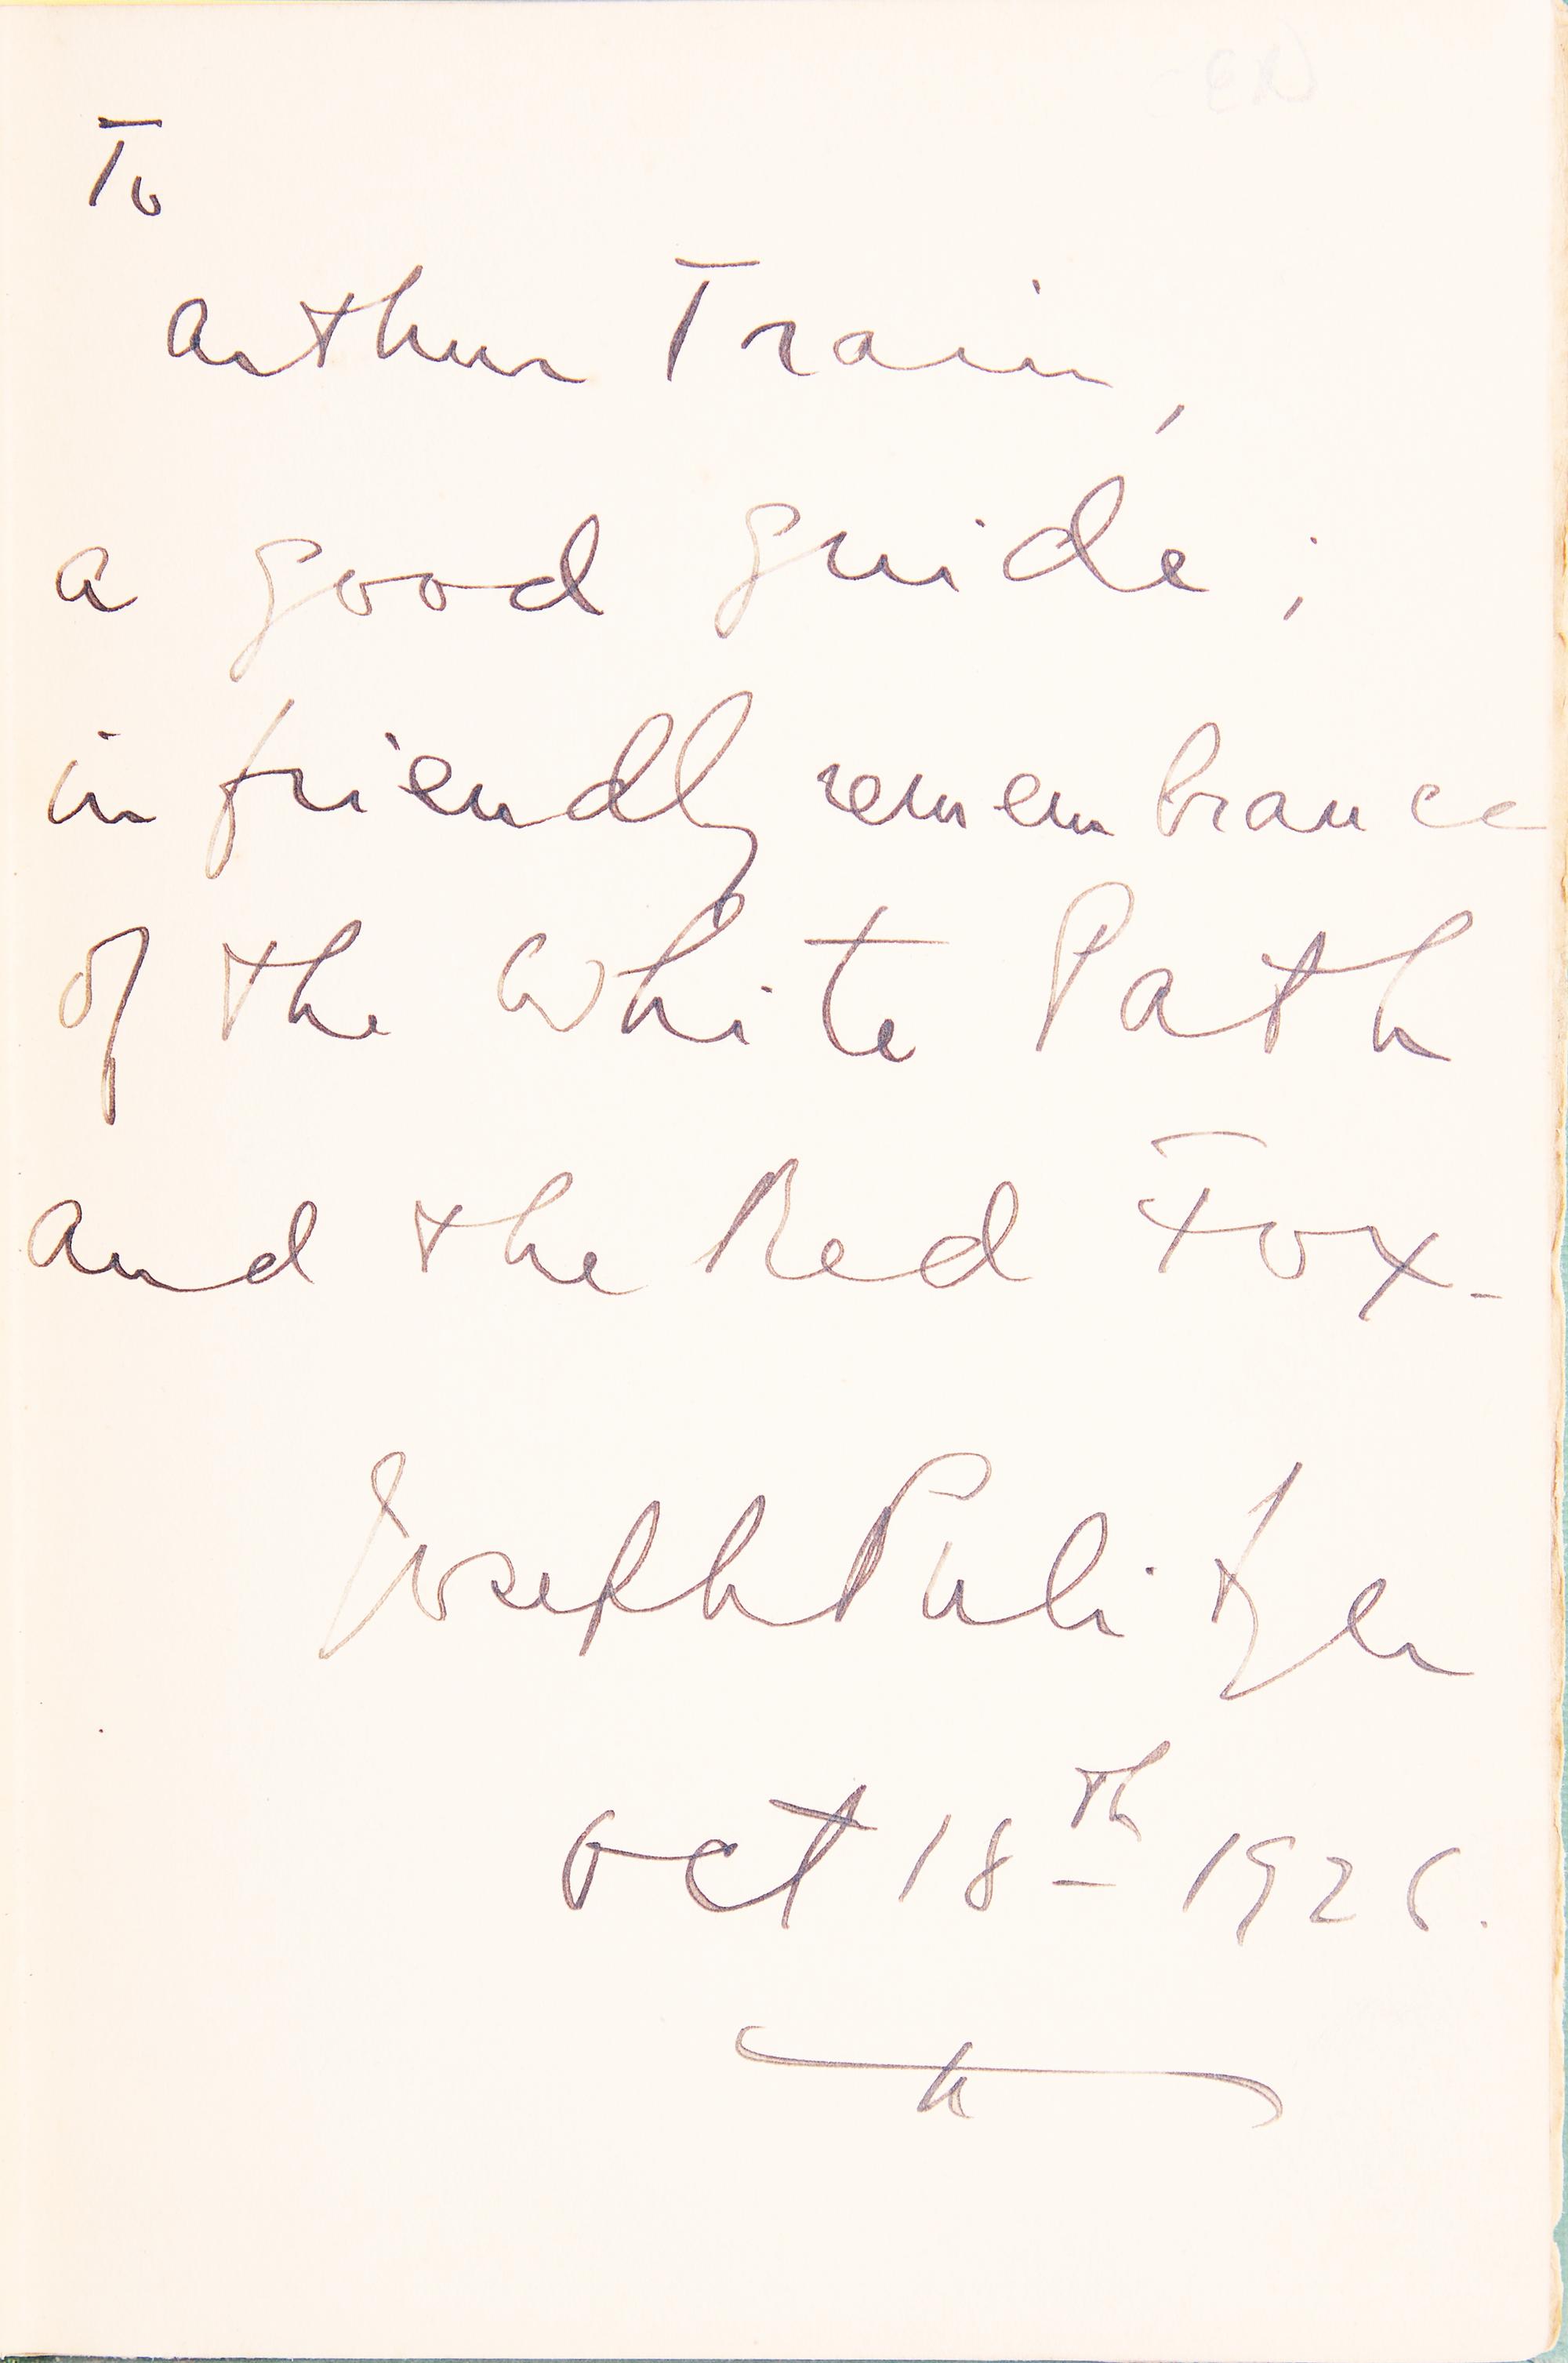 To
Arthur Train,
a good guide;
in friendly remembrance
of the White Path
and the Red Fox.
Joseph Pulitzer
Oct 18th 1926.